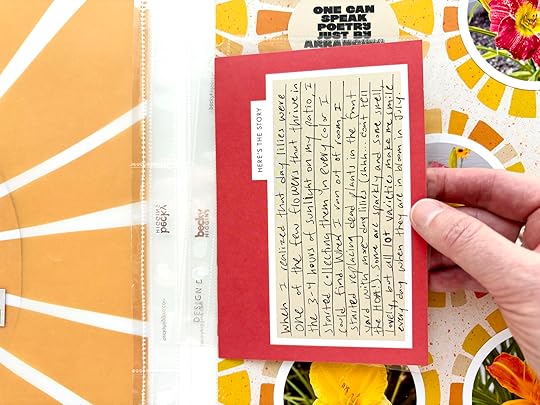 ONE CAN
SPEAK
POETRY
JUST BY
HERE'S THE STORY
When I realized that day lilies were
one of the few flowers that thrive in
the 3-4 hours of sunlight on my patio, I
started collecting them in every color I
could find. When I ran out of room I
started replacing dead plants in the front
yard with more day lilies (shhh... don't tell
the HOA!) Some are sparkly and some smell
lovely but all 10+ varieties make me smile
every day when they are in bloom in July.
becky
HIGGINS
becky
HIGGINS
DESIGN C